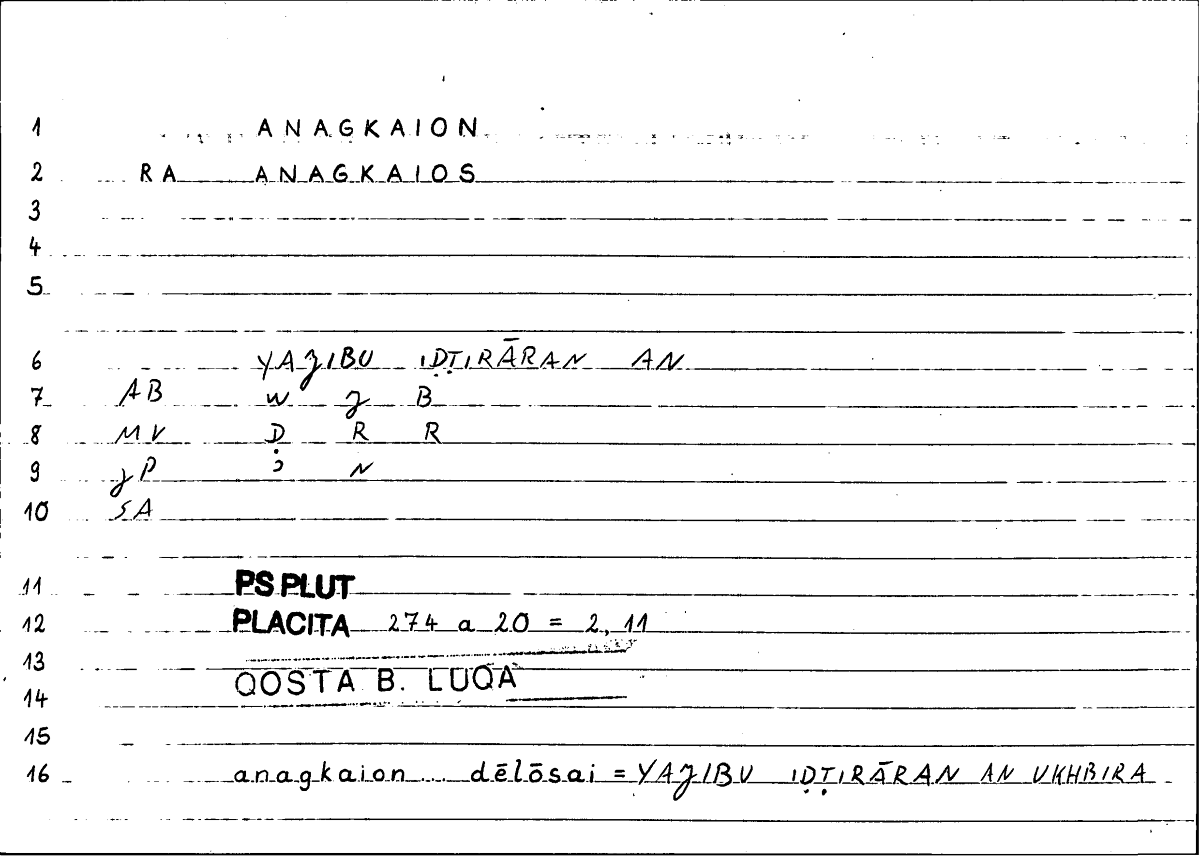 1 ANAGKAION
2 RA ANAGKAIOS
3
4
5
6 YAȷIBU IḌṬIRĀRAN AN
7 AB W ȷ B
8 MV Ḍ R R
9 ȷP ʾ N
10 SA
11 PS PLUT
12 PLACITA 274 a 20 = 2, 11
13
14 QOSTA B. LUQA
15
16 anagkaion ... dēlōsai = YAȷIBU IḌṬIRĀRAN AN UKHBIRA